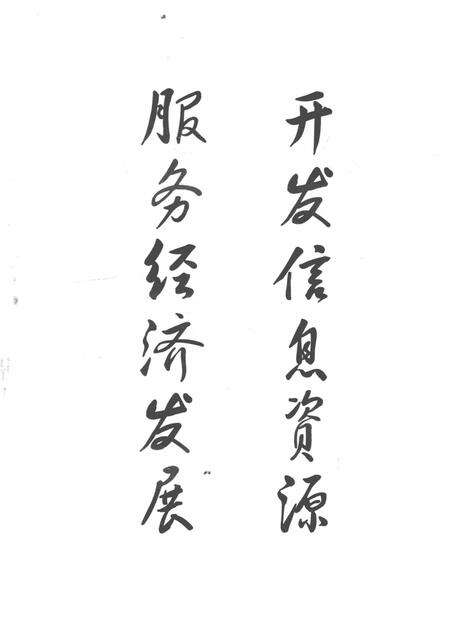 开发信息資源
服务经济发展